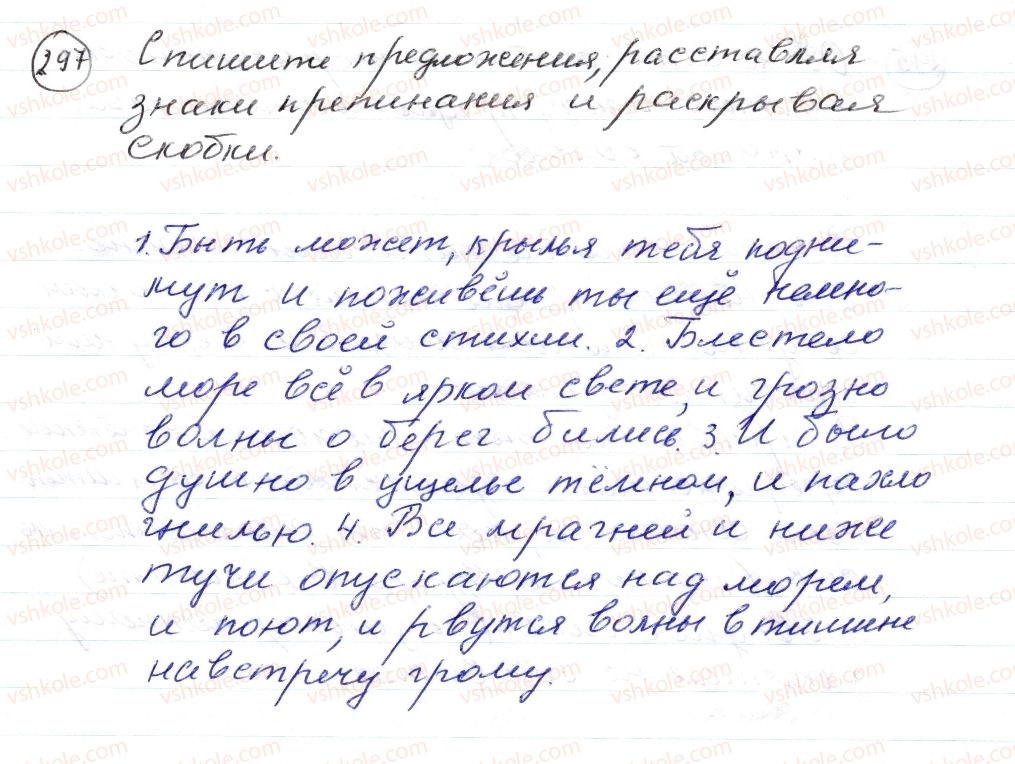 297 Спишите предложения, расставляя
знаки препинания и раскрывая
скобки.
1. Быть может, крылья тебя подни-
мут и поживёшь ты ещё немно-
го в своей стихии. 2. Блестело
море всё в ярком свете, и грозно
волны о берег бились. 3. И было
душно в ущелье тёмном, и пахло
гнилью. 4. Все мрачней и ниже
тучи опускаются над морем,
и поют, и рвутся волны в тишине
навстречу грому.